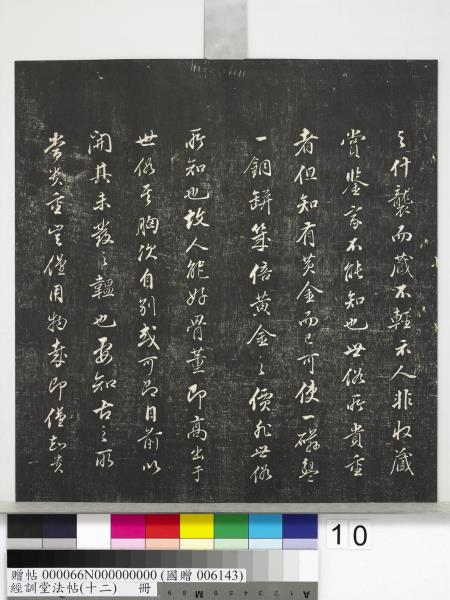 之什襲而藏不輕示人非收藏
賞鑒家不能知也世俗所貴重
者但知有黃金而已可使一磁甌
一銅缾幾倍黃金之價非世俗
所知也故人能好骨董即高出于
世俗其胸次自別或可即目前以
開其未發之韞也要知古之所
貴重豈僅用物哉即僅
10
贈帖 000066N000000000 (國贈 006143)
經訓堂法帖(十二) 冊